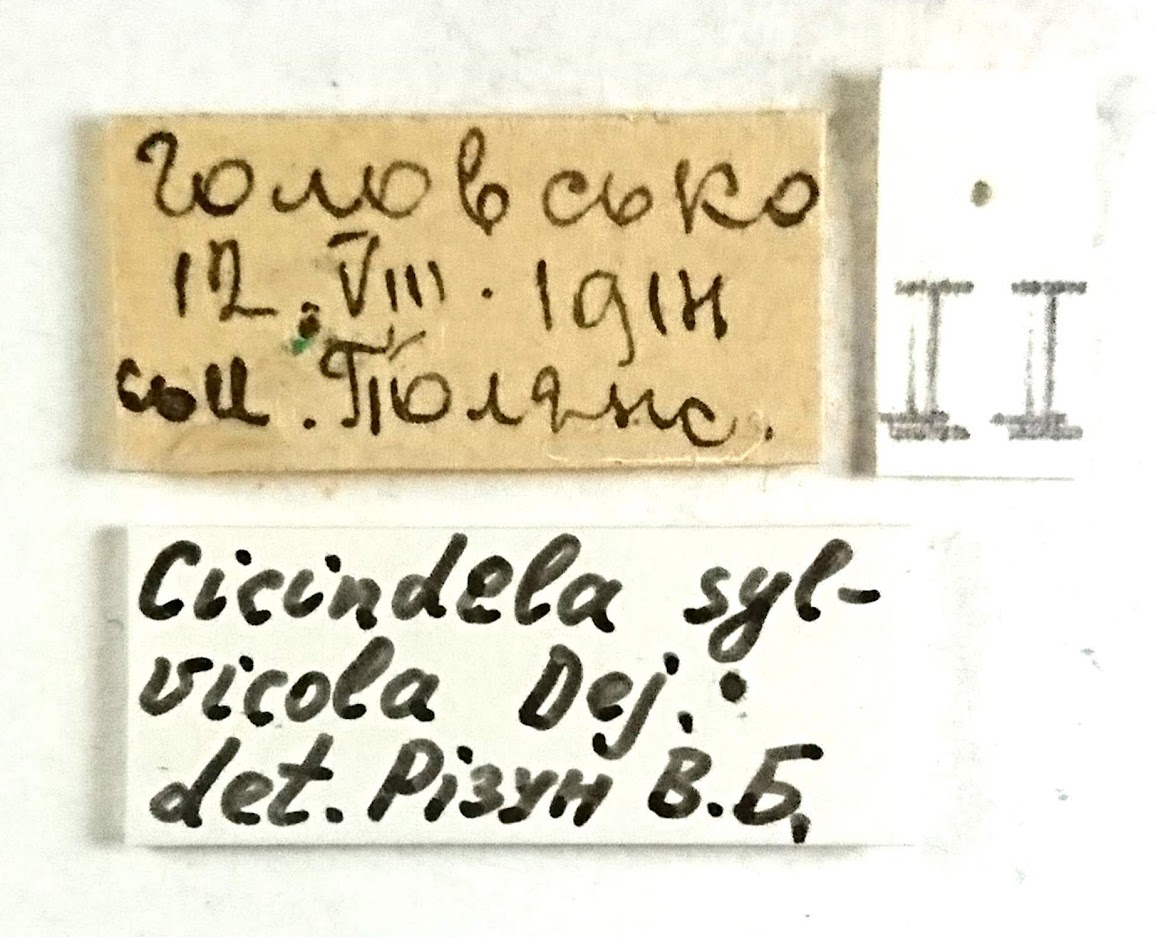 Головсько
12.VIII.1914
Полянс.
II
Cicindela syl-
vicola Dej.
det. Різун В.Б.